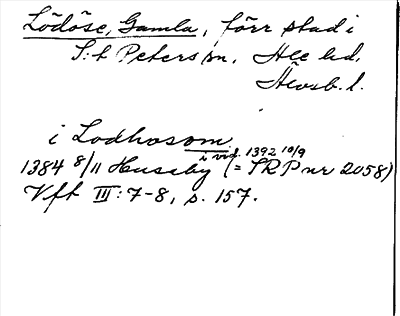 Lödöse, Gamla, förr stad i
S:t Peters sn, Ale hd,
Älvsb. l.
i Lodhosom
i vid. 1392 10/9
1384 8/11 Husaby (= SRP nr 2058)
Vft III: 7-8, s. 157.